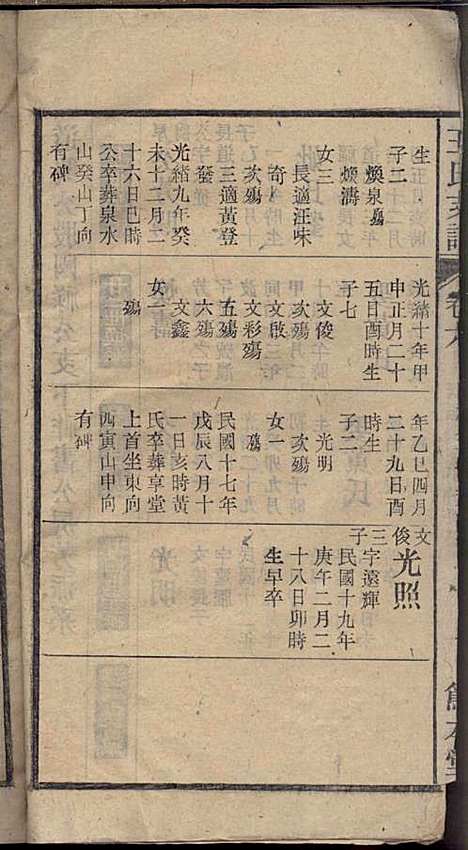 王氏支譜
卷九
生
子二
煥泉殤
煥濤
女三
長適汪味
奇
次殤
三適黃登
發
光緒九年癸
未十二月二
十六日巳時
公卒葬泉水
山癸山丁向
有碑
光緒十年甲
申正月二十
五日酉時生
子七
文俊
次殤
文啟
文彩殤
五殤
六殤
文鑫
女一
殤
年乙巳四月
二十九日酉
時生
子二
光明
次殤
女一
殤
民國十七年
戊辰八月十
一日亥時黃
氏卒葬享堂
上首坐東向
西寅山申向
有碑
文俊三子
光照
字遠輝
民國十九年
庚午二月二
十八日卯時
生早卒